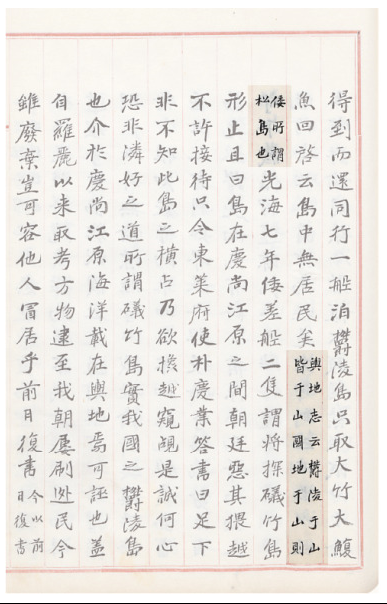 得到而還同行一船泊欝陵島只取大竹大鰒
魚回啓云島中無居民矣輿地志云欝陵于山
皆于山國地于山則
倭所謂
松島也光海七年倭差船二隻謂將探礒竹島
形止且曰島在慶尚江原之間朝廷惡其猥越
不許接待只令東莱府使朴慶業答書曰足下
非不知此島之横占乃欲攙越窺覘是誠何心
恐非隣好之道所謂礒竹島實我國之欝陵島
也介於慶尚江原海洋載在輿地焉可誣也盖
自羅麗以来取考方物逮至我朝屡刷逃民今
雖廢棄豈可容他人冒居乎前日復書今以前
日復書